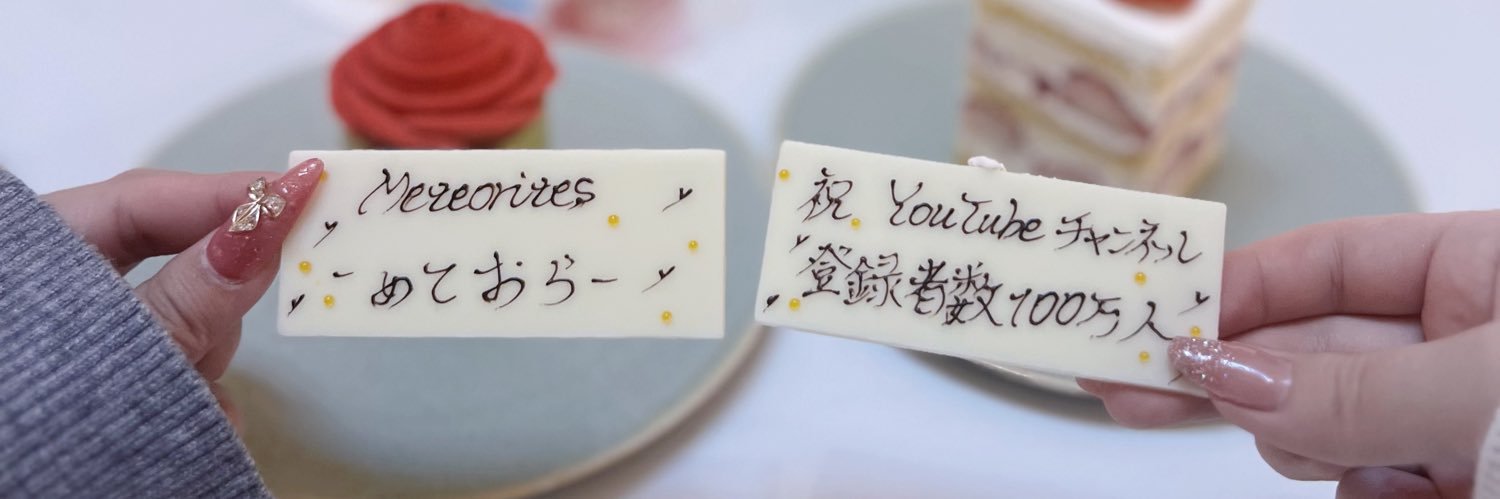 Meteorites
－めておらー
祝 YouTubeチャンネル
登録者数100万人